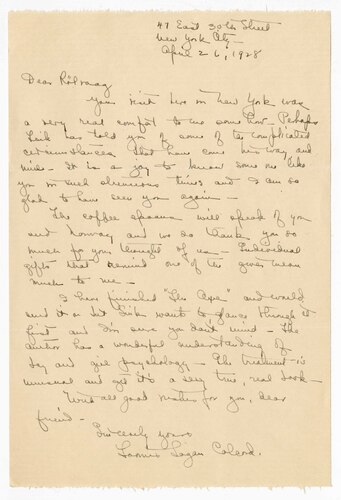 47 East 30th Street
New York City
April 26, 1928
Dear Rölvaag
Your visit here in New York was
a very real comfort to me some how - Perhaps
has told you of some of the complicated
circumstances that have come his way and
mine - It is a joy to know some one like
you in such strenuous times and I am so
glad to have seen you again -
The coffee spoons will speak of you
and Norway and we do thank you so
much for your thought of us - Individual
gifts that remind one of the giver mean
much to me -
I have finished "The Ape" and would
send it on but want to glance through it
first and I'm sure you don't mind - The
author has a wonderful understanding of
boy and girl psychology - The treatment is
unusual and yet it's a very true, real book -
With all good wishes for you, dear
friend -
Sincerely yours
Colcord.